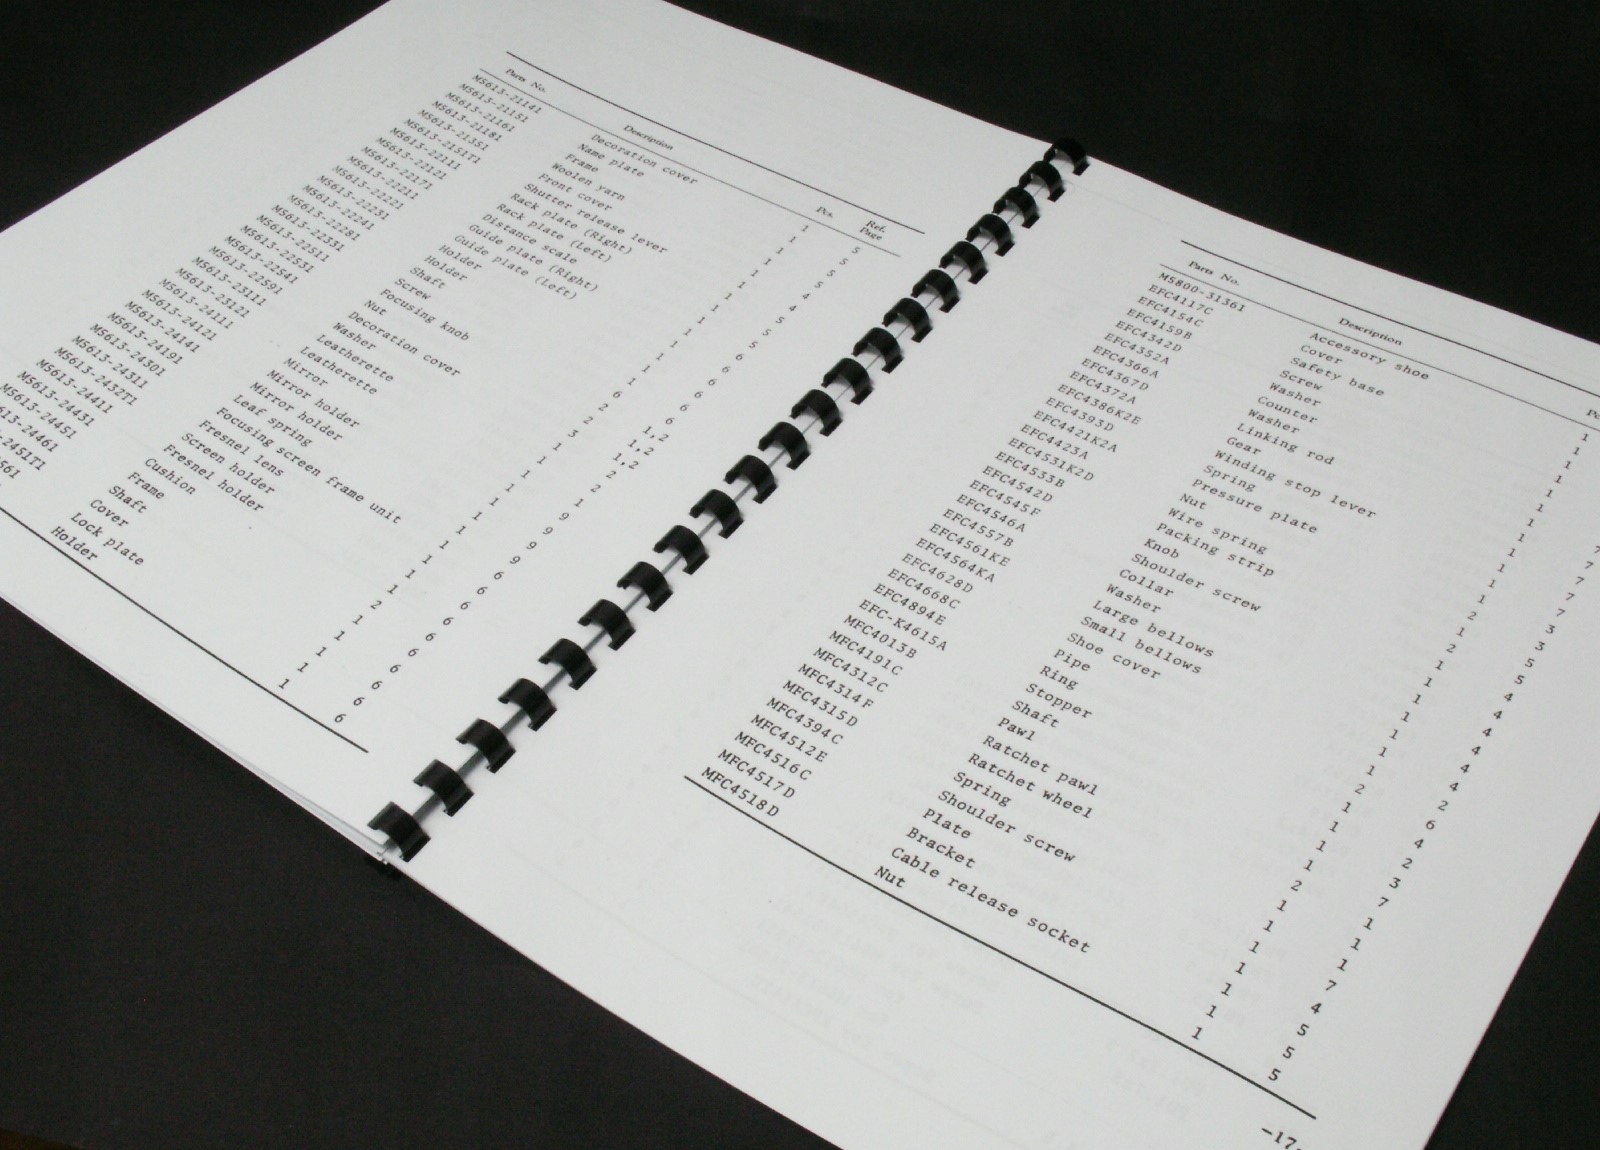 Parts No. Description Pcs. Ref. Page
MS613-21141 Decoration cover 1 5
MS613-21151 Name plate 1 5
MS613-21161 Frame
MS613-21181 Woolen yarn
MS613-21351 Front cover
MS613-2151T1 Shutter release lever
MS613-22111 Rack plate (Right)
MS613-22121 Rack plate (Left)
MS613-22171 Distance scale
MS613-22211 Guide plate (Right)
MS613-22221 Guide plate (Left)
MS613-22231 Holder
MS613-22241 Holder
MS613-22281 Shaft
MS613-22331 Screw
MS613-22511 Focusing knob
MS613-22531 Nut
MS613-22541 Decoration cover
MS613-22591 Washer
MS613-23111 Leatherette
MS613-23121 Leatherette
MS613-24111 Mirror
MS613-24121 Mirror holder
MS613-24141 Mirror holder
MS613-24191 Leaf spring
MS613-24301 Focusing screen frame unit
MS613-24311 Fresnel lens
MS613-2432T1 Screen holder
MS613-24411 Fresnel holder
MS613-24431 Cushion
MS613-24451 Frame
613-24461 Shaft
-2451T1 Cover
561 Lock plate 1 6
Holder 1 6
Parts No. Description
MS800-31361 Accessory shoe
EFC4117C Cover
EFC4154C Safety base
EFC4159B Screw
EFC4342D Washer
EFC4352A Counter
EFC4366A Washer
EFC4367D Linking rod
EFC4372A Gear
EFC4386K2E Winding stop lever
EFC4393D Spring
EFC4421K2A Pressure plate
EFC4423A Nut
EFC4531K2D Wire spring
EFC4533B Packing strip
EFC4542D Knob
EFC4545F Shoulder screw
EFC4546A Collar
EFC4557B Washer
EFC4561KE Large bellows
EFC4564KA Small bellows
EFC4628D Shoe cover
EFC4668C Pipe
EFC4894E Ring
EFC-K4615A Stopper
MFC4013B Shaft
MFC4191C Pawl
MFC4312C Ratchet pawl
MFC4314F Ratchet wheel
MFC4315D Spring
MFC4394C Shoulder screw
MFC4512E Plate 1 4
MFC4516C Bracket 1 5
MFC4517D Cable release socket 1 5
MFC4518D Nut 1 5
-17